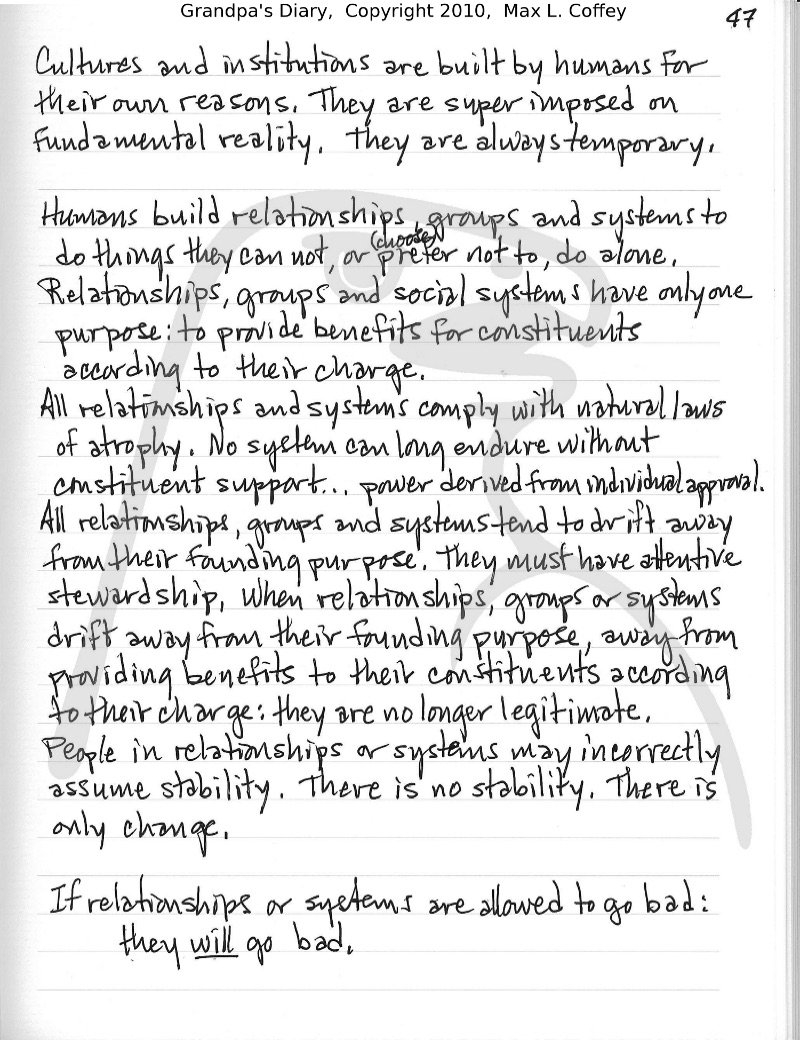 Grandpa's Diary, Copyright 2010, Max L. Coffey
47
Cultures and institutions are built by humans for
their own reasons. They are super imposed on
fundamental reality. They are always temporary.
Humans build relationships, groups and systems to
(choose)
do things they can not, or prefer not to, do alone.
Relationships, groups and social systems have only one
purpose: to provide benefits for constituents
according to their charge.
All relationships and systems comply with natural laws
of atrophy. No system can long endure without
constituent support... power derived from individual approval.
All relationships, groups and systems tend to drift away
from their founding purpose. They must have attentive
stewardship. When relationships, groups or systems
drift away from their founding purpose, away from
providing benefits to their constituents according
to their charge: they are no longer legitimate.
People in relationships or systems may incorrectly
assume stability. There is no stability. There is
only change.
If relationships or systems are allowed to go bad:
they will go bad.